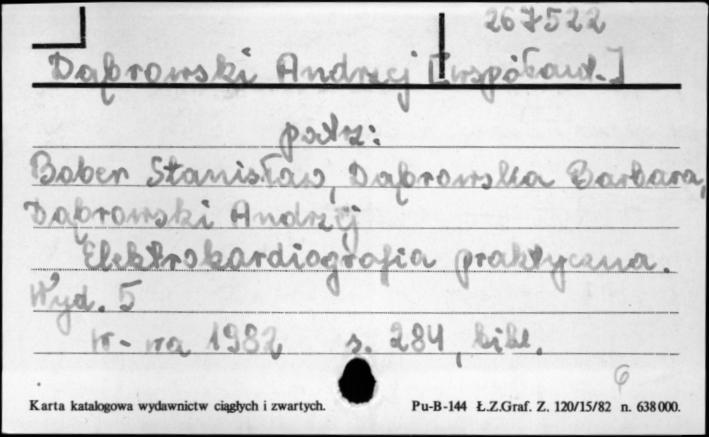 267522
Dąbrowski Andrzej [współaut.]
patrz:
Bober Stanisław, Dąbrowska Barbara,
Dąbrowski Andrzej
Elektrokardiografia praktyczna.
Wyd. 5
W-wa 1982 s. 284, bibl.
6
Karta katalogowa wydawnictw ciągłych i zwartych. Pu-B-144 Ł.Z.Graf. Z. 120/15/82 n. 638000.